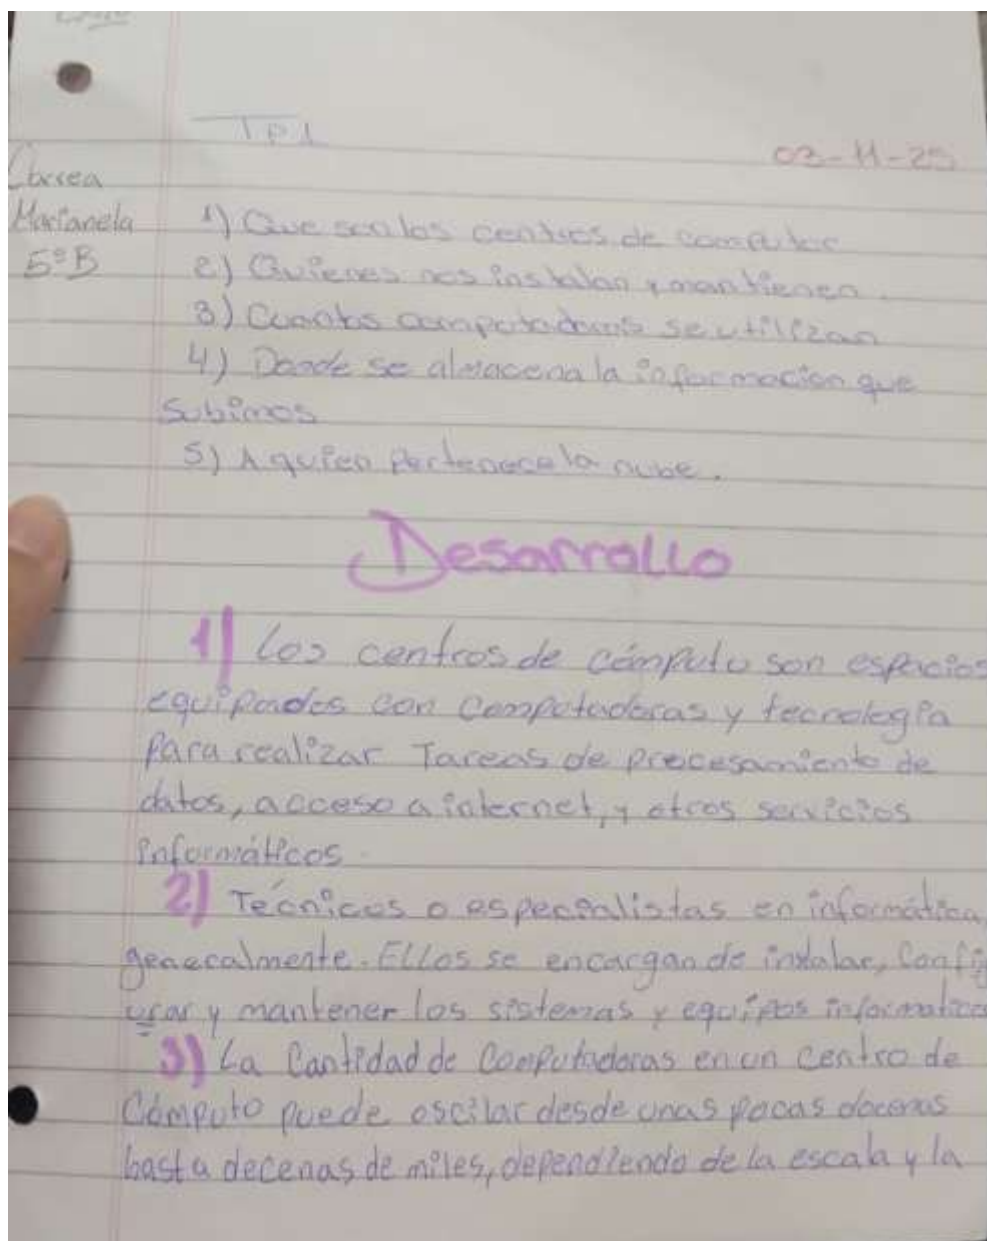 TP1
03-11-25
Correa
Marianela
5°B
1) Que son los centros de computo
2) Quienes nos instalan y mantienen.
3) Cuantas computadoras se utilizan
4) Donde se almacena la informacion que
subimos
5) A quien pertenece la nube.
Desarrollo
1) Los centros de cómputo son espacios
equipados con computadoras y tecnología
para realizar Tareas de procesamiento de
datos, acceso a internet, y otros servicios
informáticos.
2) Técnicos o especialistas en informática,
generalmente. Ellos se encargan de instalar, Config
urar y mantener los sistemas y equipos informatico
3) La Cantidad de Computadoras en un Centro de
Cómputo puede oscilar desde unas pocas docenas
hasta decenas de miles, dependiendo de la escala y la